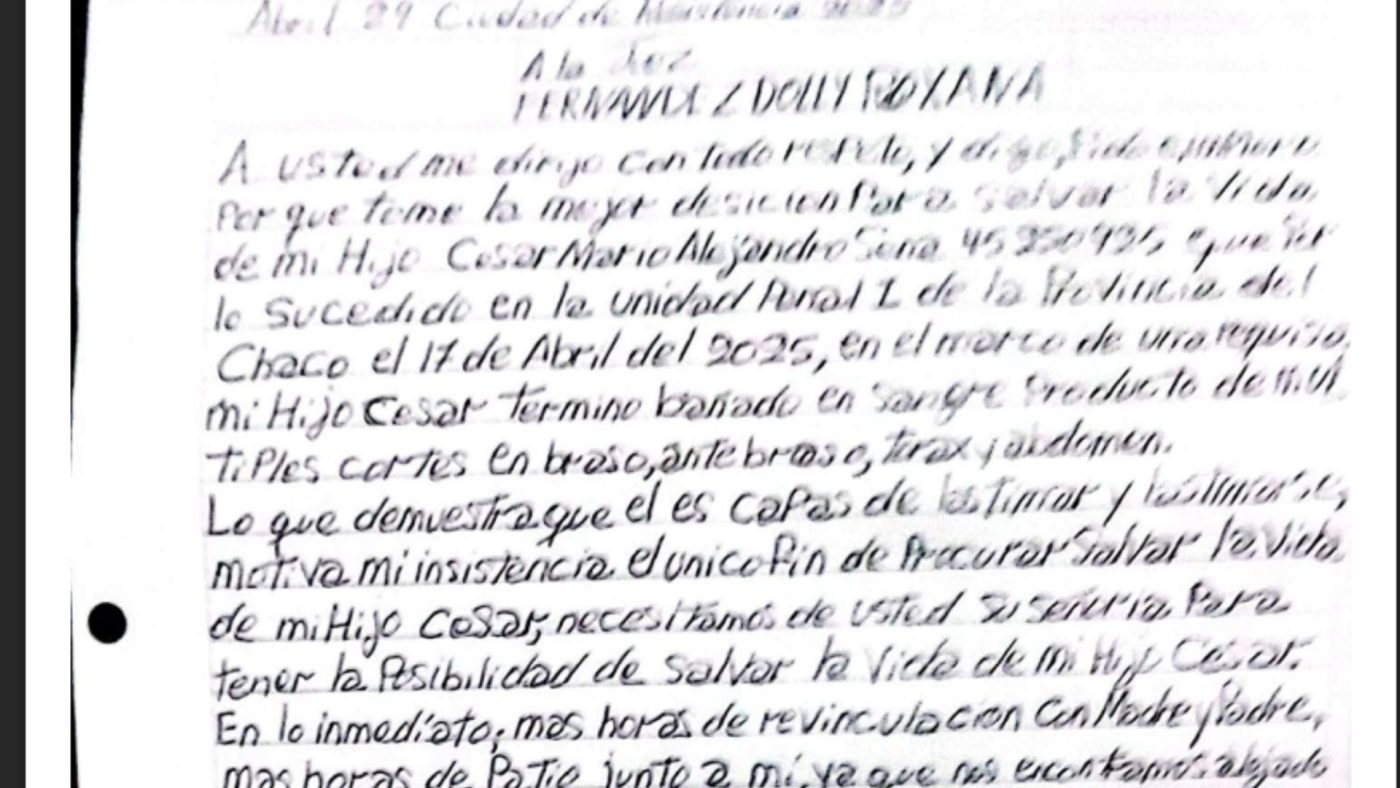 Abril 29 Ciudad de Resistencia 2025
A la Juez
FERNANDEZ DOLLY ROXANA
A usted me dirijo con todo respeto, y digo, pido
Por que tome la mejor desicion Para salvar la Vida
de mi Hijo Cesar Mario Alejandro Sena 45250925, que Por
lo Sucedido en la unidad Penal I de la Provincia del
Chaco el 17 de Abril del 2025, en el marco de una requisa,
mi Hijo Cesar Termino bañado en Sangre Producto de Mul
TiPles cortes en braso, ante braso, torax y abdomen.
Lo que demuestra que el es capas de lastimar y lastimarse,
motiva mi insistencia el unico fin de Procurar Salvar la Vida
de mi Hijo CeSar, necesitamos de usted Su señoria Para
tener la Posibilidad de Salvar la Vida de mi Hijo Cesar.
En lo inmediato, mas horas de revinculacion con Madre y Padre,
mas horas de Patio junto a mi, ya que nos encontramos alejado